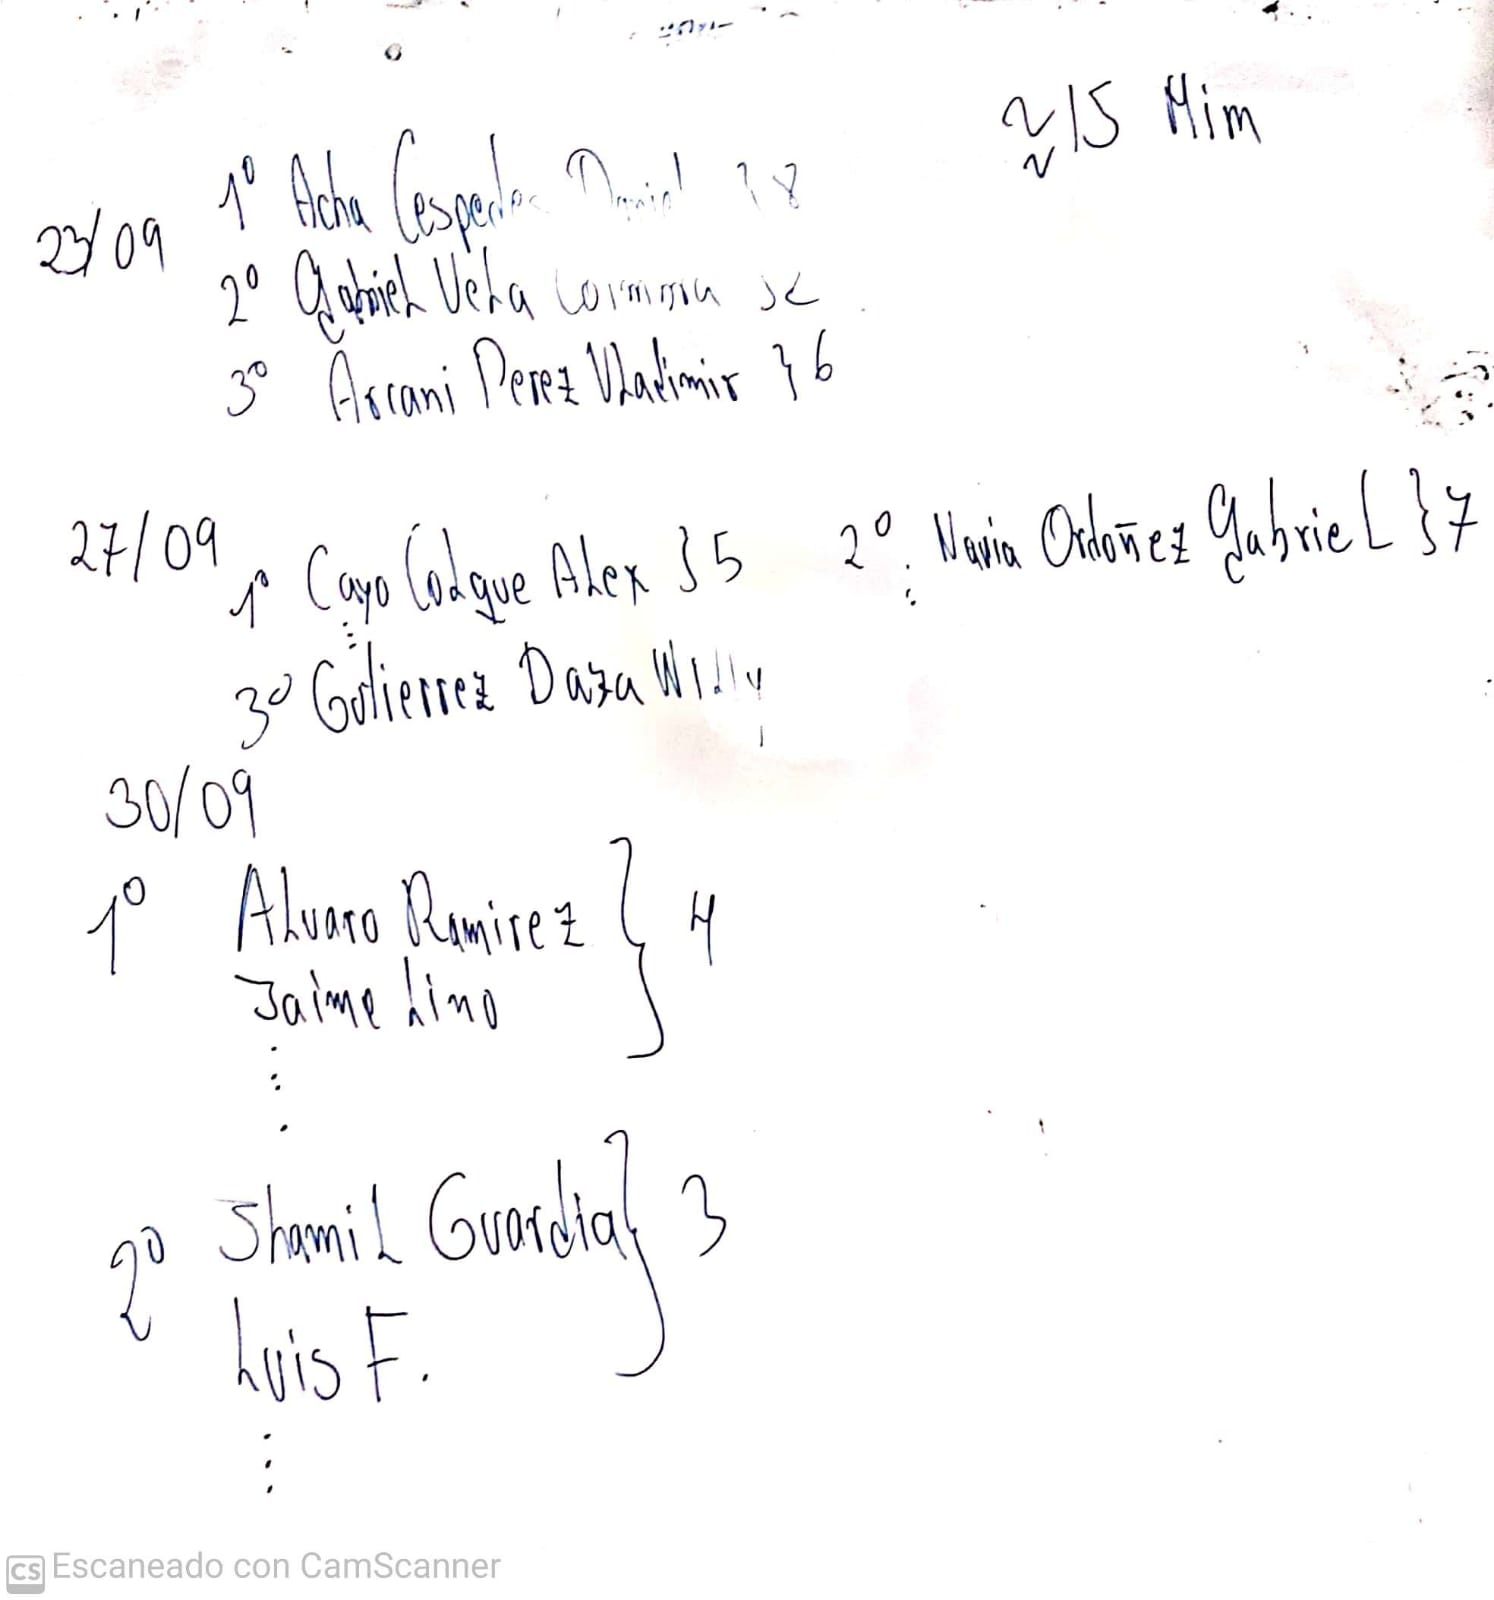 ≈ 15 Mim
23/09
1º Acha Cespedes Daniel } 8
2º Gabriel Vela
3º Arcani Perez Vladimir } 6
27/09
1º Cayo Colque Alex } 5
2º Navia Ordoñez Gabriel } 7
3º Gutierrez Daza Willy
30/09
1º Alvaro Ramirez } 4
Jaime Lino
2º Shamil Guardia } 3
Luis F.
CS Escaneado con CamScanner